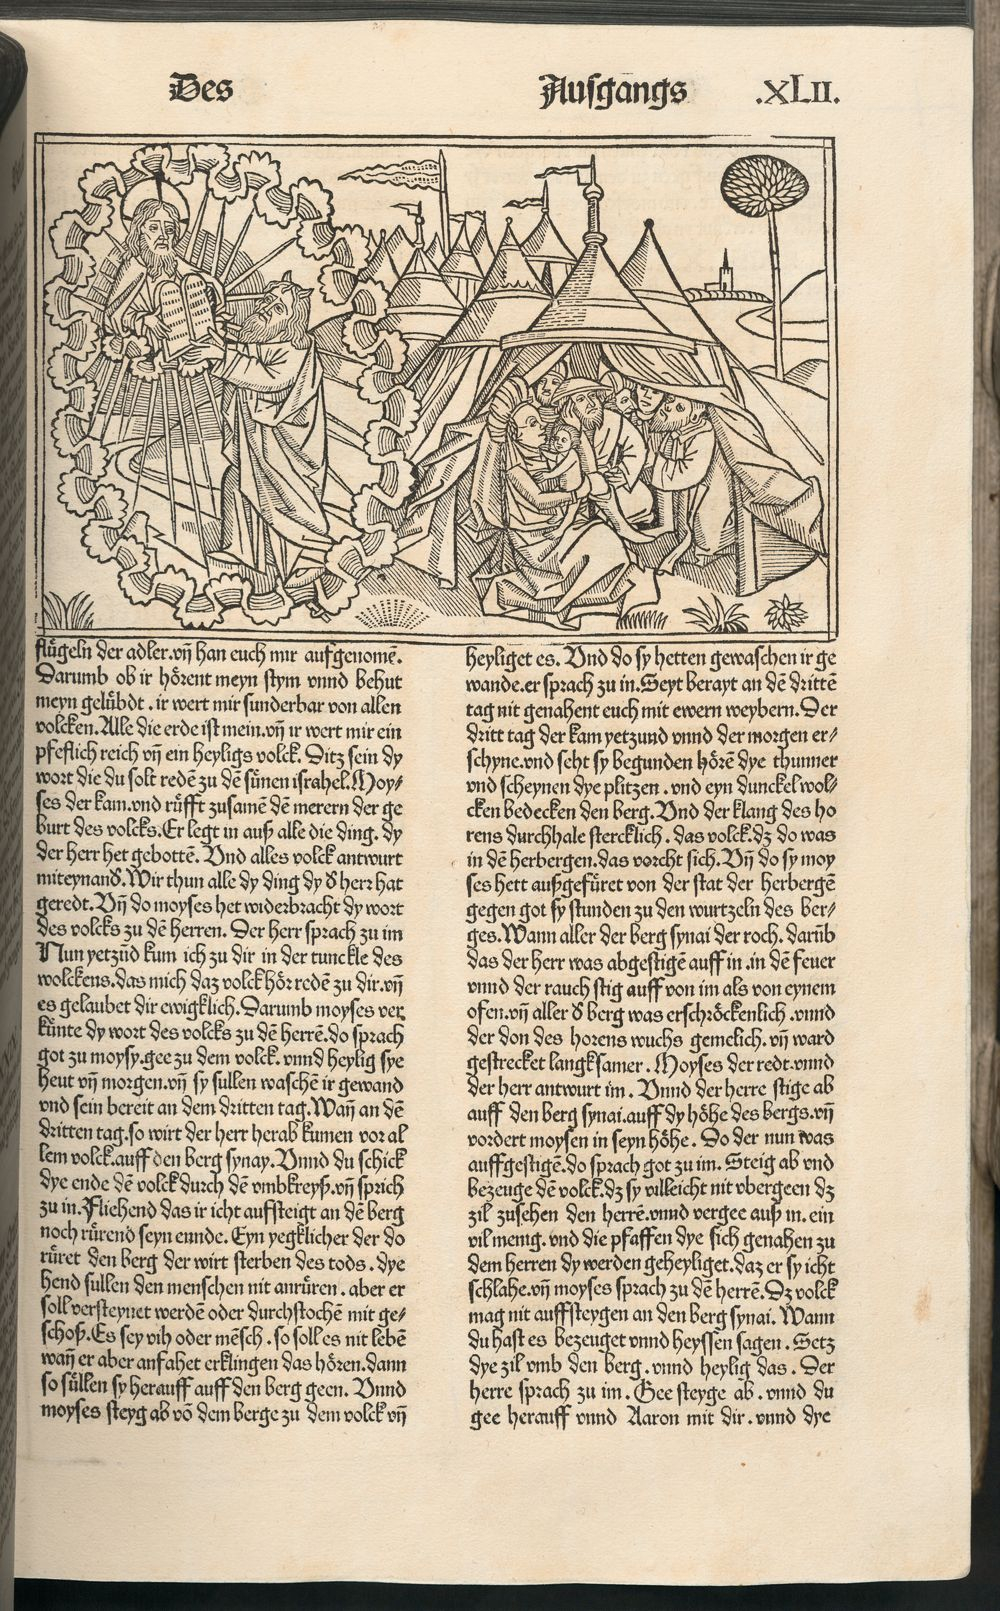 Des
Ausgangs .XLII.
flügeln der adler.vñ han euch mir aufgenomẽ.
Darumb ob ir hörent meyn stym vnnd behut
meyn gelübdt . ir wert mir sunderbar von allen
volcken. Alle die erde ist mein.vñ ir wert mir ein
pfeflich reich vñ ein heyligs volck. Ditz sein dy
wort die du solt redẽ zu dẽ sünen israhel. Moy⸗
ses der kam.vnd rüfft zusamẽ dẽ merern der ge
burt des volcks.Er legt in auß alle die ding. dy
der herr het gebottẽ. Vnd alles volck antwurt
miteynand̕. Wir thun alle dy ding dy d̕ herr hat
geredt. Vñ do moyses het widerbracht dy wort
des volcks zu dẽ herren. Der herr sprach zu im
Nun yetzũd kum ich zu dir in der tunckle des
wolckens.das mich daz volck hör redẽ zu dir.vñ
es gelaubet dir ewigklich. Darumb moyses ver
künte dy wort des volcks zu dẽ herrẽ.do sprach
got zu moysy.gee zu dem volck. vnnd heylig sye
heut vñ morgen.vñ sy sullen waschẽ ir gewand
vnd sein bereit an dem dritten tag. Wañ an dẽ
dritten tag.so wirt der herr herab kumen vor al
lem volck.auff den berg synay. Vnnd du schick
dye ende dẽ volck durch dẽ vmbkreyß.vñ sprich
zu in. Fliehend das ir icht aufsteigt an dẽ berg
noch rürend seyn ennde. Eyn yegklicher der do
rüret den berg der wirt sterben des tods . dye
hend sullen den menschen nit anrüren . aber er
soll versteynet werdẽ oder durchstochẽ mit ge⸗
schoß.Es sey vih oder mẽsch . so soll es nit lebẽ
wañ er aber anfahet erklingen das hören.dann
so süllen sy herauff auff den berg geen. Vnnd
moyses steyg ab võ dem berge zu dem volck vñ
heyliget es. Vnd do sy hetten gewaschen ir ge
wande.er sprach zu in.Seyt berayt an dẽ drittẽ
tag nit genahent euch mit ewern weybern. Der
dritt tag der kam yetzund vnnd der morgen er⸗
schyne.vnd seht sy begunden hörẽ dye thunner
vnd scheynen dye plitzen . vnd eyn dunckel wol⸗
cken bedecken den berg. Vnd der klang des ho
rens durchhale stercklich . das volck.dz do was
in dẽ herbergen.das vorcht sich. Vñ do sy moy
ses hett außgefüret von der stat der herbergẽ
gegen got sy stunden zu den wurtzeln des ber⸗
ges. Wann aller der berg synai der roch. darũb
das der herr was abgestigẽ auff in .in dẽ feuer
vnnd der rauch stig auff von im als von eynem
ofen.vñ aller d̕ berg was erschröckenlich .vnnd
der don des horens wuchs gemelich. vñ ward
gestrecket langksamer . Moyses der redt.vnnd
der herr antwurt im . Vnnd der herre stige ab
auff den berg synai.auff dy höhe des bergs.vñ
vordert moysen in seyn höhe . Do der nun was
auffgestigẽ.do sprach got zu im. Steig ab vnd
bezeuge dẽ volck.dz sy villeicht nit vbergeen dz
zil zusehen den herrẽ.vnnd vergee auß in. ein
vil menig. vnd die pfaffen dye sich genahen zu
dem herren dy werden geheyliget.daz er sy icht
schlahe.vñ moyses sprach zu dẽ herrẽ. Dz volck
mag nit auffsteygen an den berg synai. Wann
du hast es bezeuget vnnd heyssen sagen . Setz
dye zil vmb den berg . vnnd heylig das . Der
herre sprach zu im . Gee steyge ab . vnnd du
gee herauff vnnd Aaron mit dir . vnnd dye